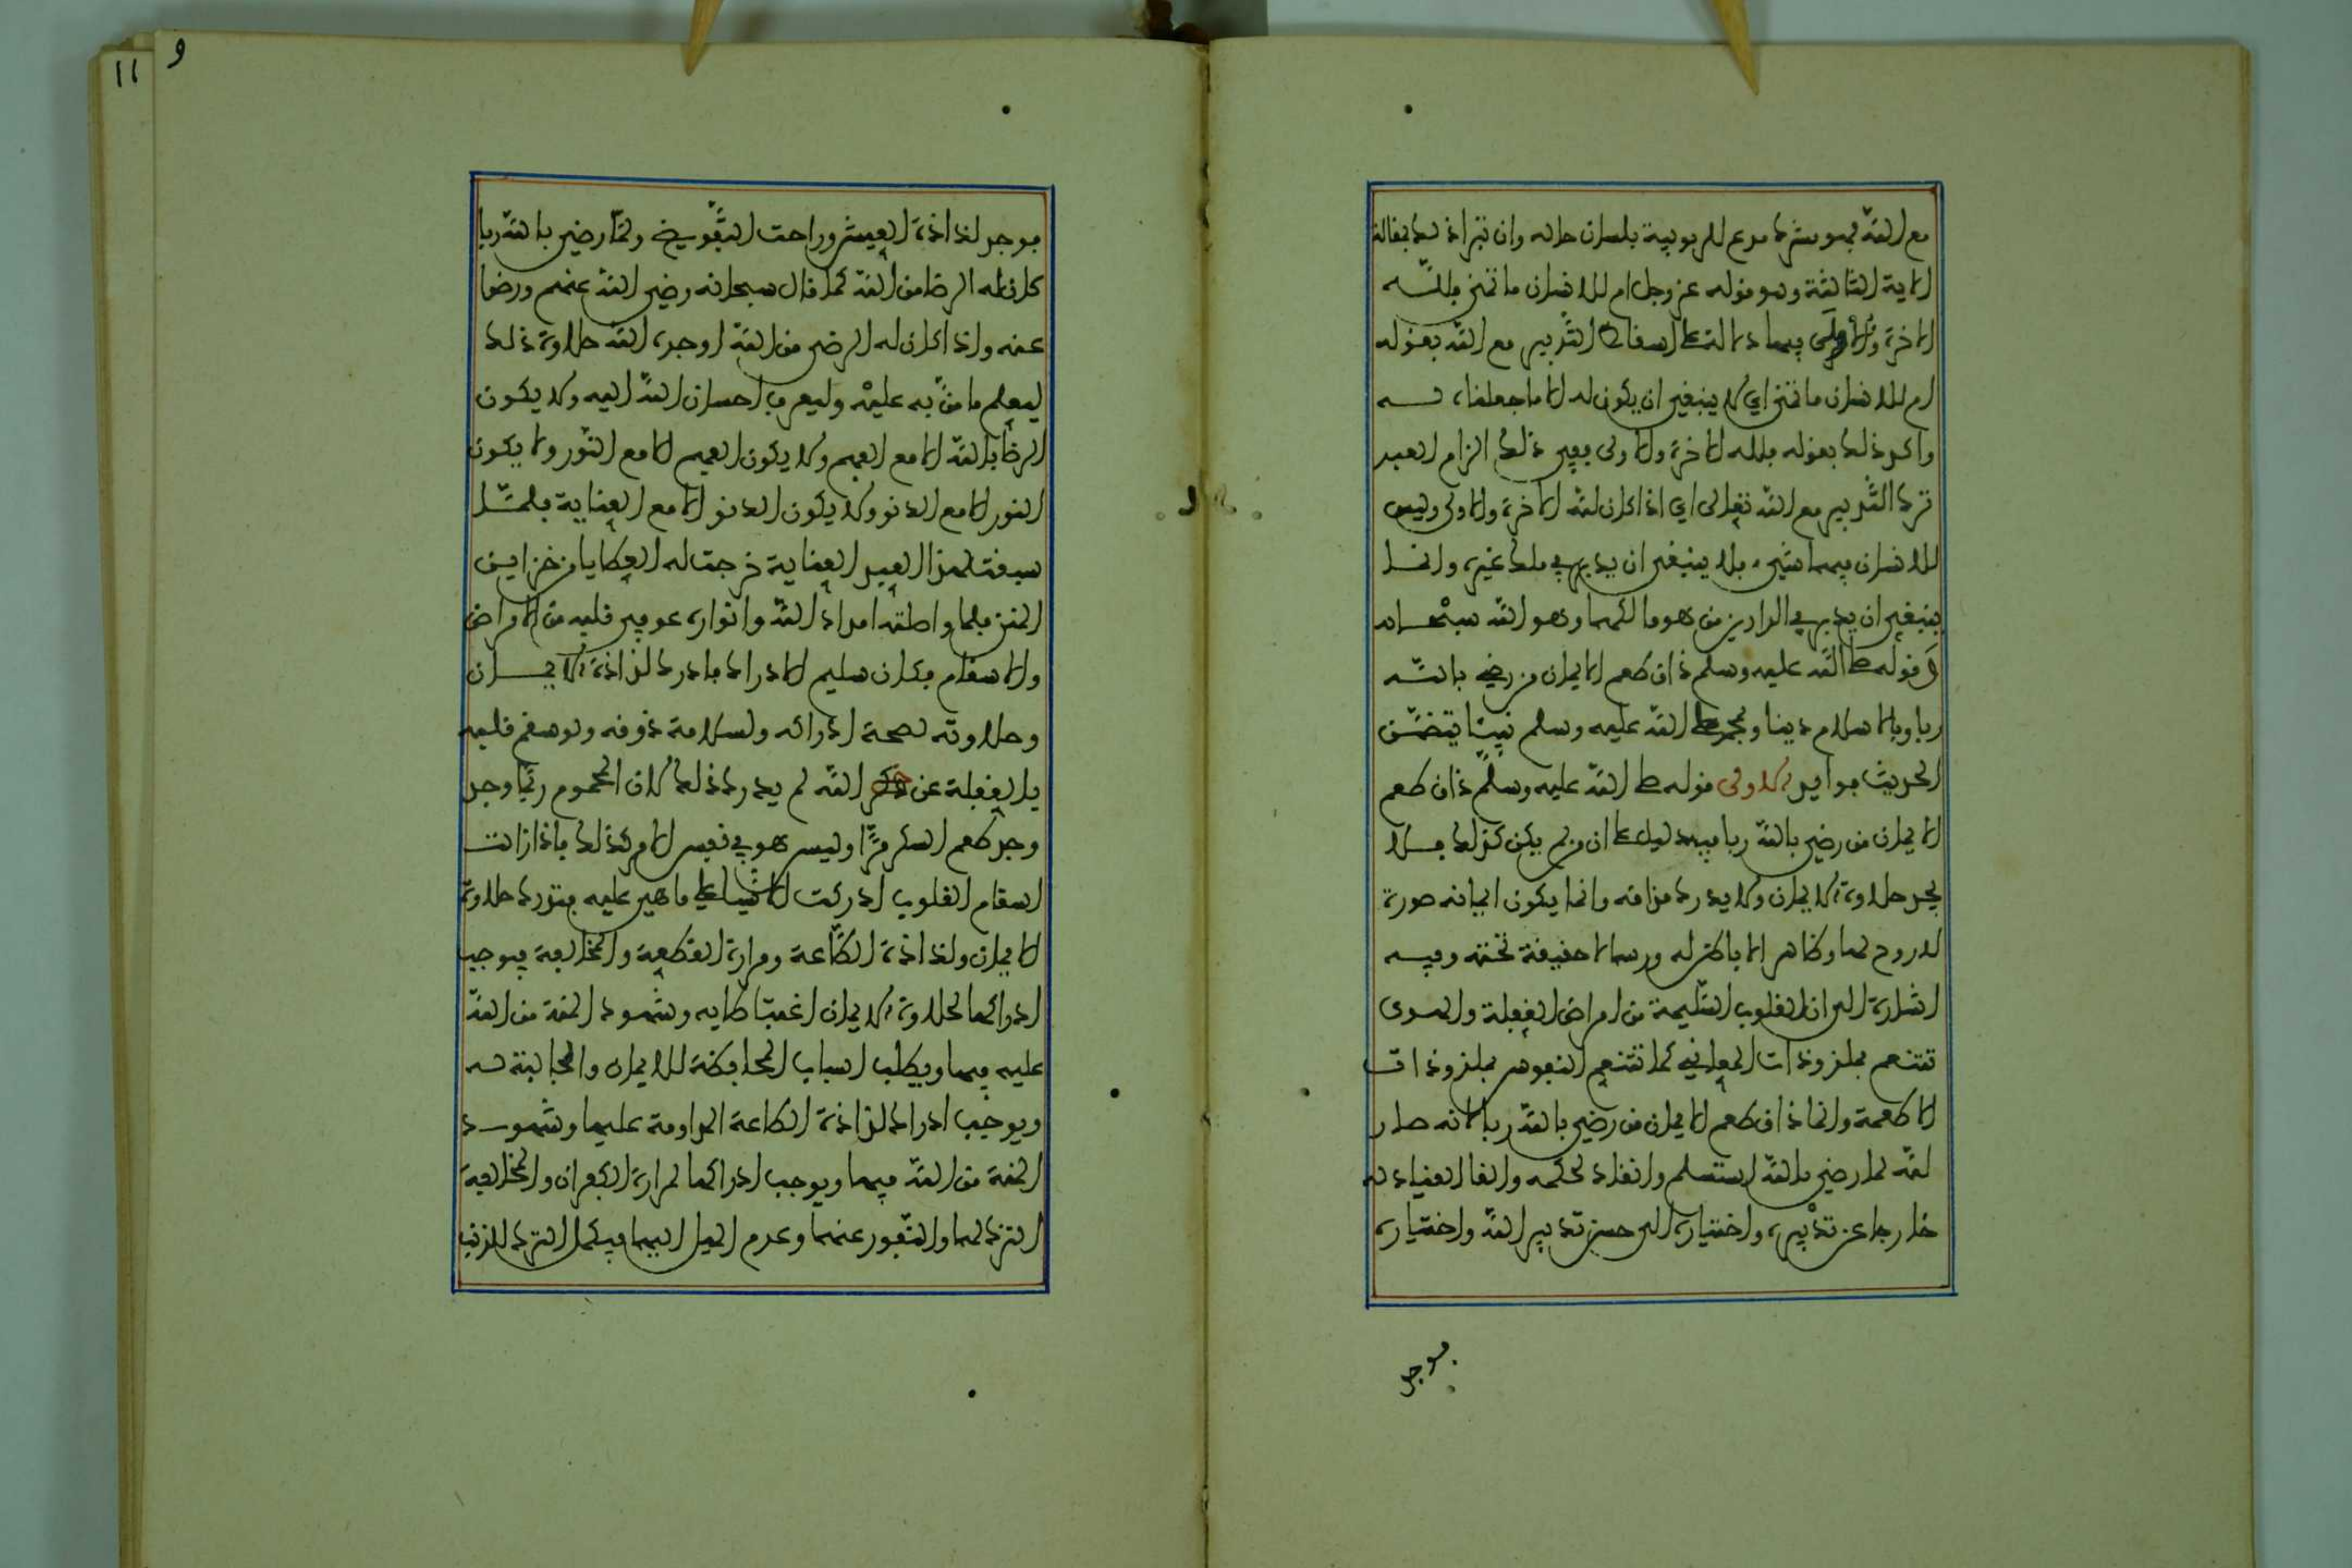 مع الله فهو مشرك مدع للربوبية بلسان حاله وان تبرا ذلك بمقاله
الاية الثالثة وهو قوله عز وجل ام للانسان ما تمنى فلله
الاخرة والاولى فيها دلالة على اسقاط التدبير مع الله بقوله
ام للانسان ما تمنى اي لا ينبغي ان يكون له الا ما جعلناه له
واكد ذلك بقوله فلله الاخرة والاولى ففي ذلك الزام العبد
ترك التدبير مع الله تعالى اي اذا كان لله الاخرة والاولى وليس
للانسان فيهما شيء فلا ينبغي ان يدبر في ملك غيره وانما
ينبغي ان يدبر في الدارين من هو مالكهما وهو الله سبحانه
وقوله صلى الله عليه وسلم ذاق طعم الايمان من رضي بالله
ربا وبالاسلام دينا وبمحمد صلى الله عليه وسلم نبيا يتضمن
الحديث فوايد الاولى قوله صلى الله عليه وسلم ذاق طعم
الايمان من رضي بالله ربا فيه دليل على ان من لم يكن كذلك فلا
يجد حلاوة الايمان ولا يدرك مذاقه وانما يكون ايمانه صورة
لا روح لها وظاهرا لا باطن له ورسما لا حقيقة تحته وفيه
اشارة الى ان القلوب السليمة من امراض الغفلة والهوى
تتنعم بملذوذات المعاني كما تتنعم النفوس بملذوذات
الاطعمة وانما ذاق طعم الايمان من رضي بالله ربا لانه صار
لله لما رضي بالله استسلم وانقاد لحكمه والقا القياد له
خارجا عن تدبيره واختياره الى حسن تدبير الله واختياره
فوجد
و
١١
فوجد لذاذة العيش وراحت التفويض ولما رضي بالله ربا
كان له الرضا من الله كما قال سبحانه رضي الله عنهم ورضوا
عنه واذا كان له الرضى من الله اوجده الله حلاوة ذلك
ليعلم ما من به عليه وليعرف احسان الله اليه ولا يكون
الرضا بالله الا مع الفهم ولا يكون الفهم الا مع النور ولا يكون
النور الا مع الدنو ولا يكون الدنو الا مع العناية فلما
سبقت لهذا العبد العناية خرجت له العطايا من خزاين
المنن فلما واصلته امداد الله وانواره عوفي قلبه من الامراض
والاسقام فكان سليم الادراك فادرك لذاذة الايمان
وحلاوته لصحة ادراكه ولسلامة ذوقه ولو سقم قلبه
بالغفلة عن ذكر الله لم يدرك ذلك لان المحموم ربما وجد
وجد طعم السكر مرا وليس هو في نفس الامر كذلك فاذا زالت
اسقام القلوب ادركت الاشيا على ما هي عليه فتدرك حلاوة
الايمان ولذاذة الطاعة ومرارة القطيعة والمخالفة فيوجب
ادراكها لحلاوة الايمان اغتباطها به وشهود المنة من الله
عليه فيها ويطلب اسباب المحافظة للايمان والجالبة له
ويوجب ادراك لذاذة الطاعة المداومة عليها وشهود
المنة من الله فيها ويوجب ادراكها لمرارة الكفران والمخالفة
الترك لها والنفور عنها وعدم الميل اليها فيكمل الترك للذنب